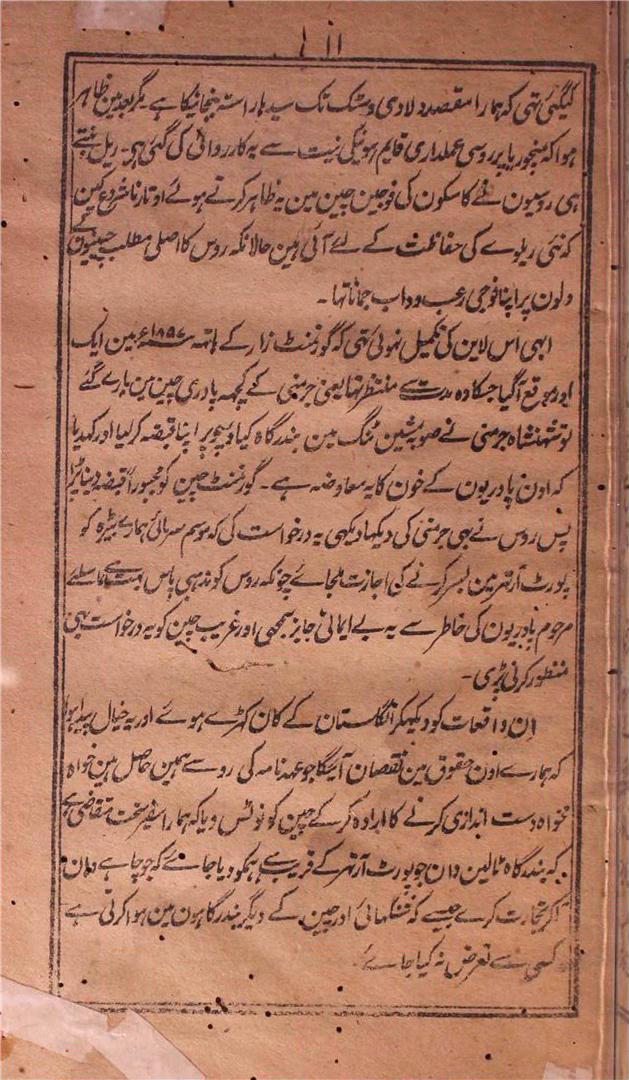 ۱۱
کیگئی تہی کہ ہمارا مقصد ولادی وسٹک تک سیدہا راستہ پہنچانیکا ہے مگر بعد مین ظاہر
ہوا کہ منچوریا پر روسی عملداری قایم ہونیکی نیت سے یہ کارروائی کی گئی تہی۔ ریل بنتے
ہی روسیون نے کاسکون کی فوجین چین مین یہ ظاہر کرتے ہوئے اوتارنا شروع کین
کہ نئی ریلوے کی حفاظت کے لئے آئی ہین حالانکہ روس کا اصلی مطلب چینیون کے
دلون پر اپنا فوجی رعب وداب جمانا تہا۔
ابہی اس لاین کی تکمیل نہوئی تہی کہ گورنمنٹ زار کے ہاتہہ ۱۸۹۷ء مین ایک
اور موقع آگیا جسکا وہ مدت سے منتظر تہا یعنی جرمنی کے کچہہ پادری چین مین مارے گئے
تو شہنشاہ جرمنی نے صوبہ شین ٹنگ مین بندرگاہ کیاوچو پر اپنا قبضہ کرلیا اور کہدیا
کہ اون پادریون کے خون کا یہ معاوضہ ہے۔ گورنمنٹ چین کو مجبوراً قبضہ دینا پڑا
پس روس نے بہی جرمنی کی دیکہا دیکہی یہ درخواست کی کہ موسم سرما مین ہمارے بیڑہ کو
پورٹ آرتہر مین بسر کرنے کی اجازت ملجائے چونکہ روس کو مذہبی پاس بہت ہے اسلئے
مرحوم پادریون کی خاطر سے یہ بے ایمانی جایز سمجہی اور غریب چین کو یہ درخواست بہی
منظور کرنی پڑی۔
ان واقعات کو دیکہکر انگلستان کے کان کہڑے ہوئے اور یہ خیال پیدا ہوا
کہ ہمارے اون حقوق مین نقصان آئیگا جو عہدنامہ کی رو سے ہمین حاصل ہین خواہ
نخواہ دست اندازی کرنے کا ارادہ کر کے چین کو نوٹس دیا کہ ہمارا سفیر سخت متقاضی ہے
کہ بندرگاہ ٹالین وان جو پورٹ آرتہر کے قریب ہے ہمکو دیا جائے کہ جو چاہے وہان
آکر تجارت کرے جیسے کہ شنگہائی اور چین کے دیگر بندرگاہون مین ہوا کرتی ہے
کسی سے تعرض نہ کیا جائے۔